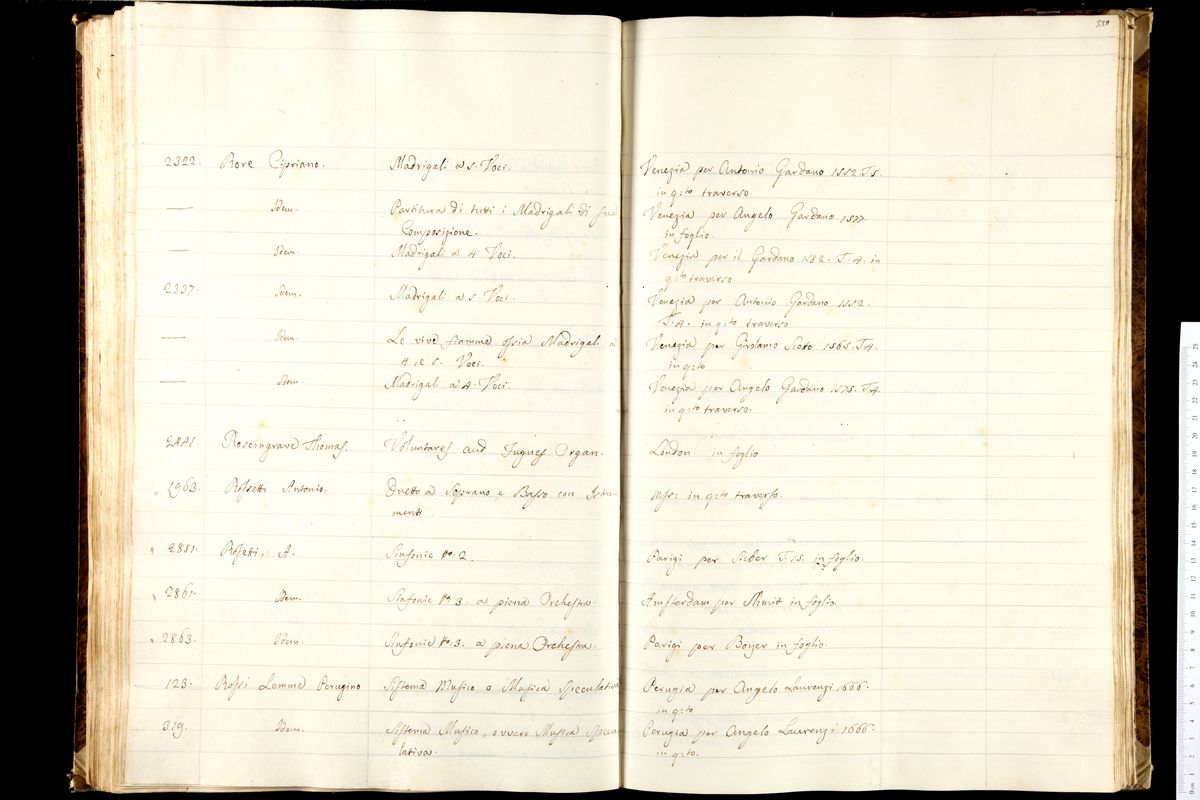 330
2322. Rore Cipriano. Madrigali a 5. Voci. Venezia per Antonio Gardano 1552. T.5.
in q:to traverso.
— Idem. Partitura di tutti i Madrigali di sua Venezia per Angelo Gardano 1577.
Composizione. in foglio.
— Idem. Madrigali a 4 Voci. Venezia per il Gardano 1582. T. 4. in
q:to traverso.
2337. Idem. Madrigali a 5. Voci. Venezia per Antonio Gardano 1552.
T. 4. in q:to traverso
— Idem. Le vive fiamme ossia Madrigali a Venezia per Girolamo Scoto 1565. T.4.
4, e 5. Voci. in q:to
— Idem. Madrigali a 4. Voci. Venezia per Angelo Gardano 1575. T.4.
in q:to traverso.
2445. Roseingrave Thomas. Voluntares and Fugues Organ. London. in foglio
1963. Rossetti Antonio. Duetto a Soprano e Basso con Istru- Mss: in q:to traverso.
menti.
2851. Rosetti, A. Sinfonie No. 2. Parigi per Sieber T. 15. in foglio.
2861. Idem. Sinfonie No. 3. a piena Orchestra. Amsterdam per in foglio.
2863. Idem. Sinfonie No. 3. a piena Orchestra. Parigi per Boyer in foglio.
123. Rossi Lemme Perugino Sistema Musico o Musica Speculativa Perugia per Angelo Laurenzi 1666.
in q:to
319. Idem. Sistema Musico, ovvero Musica Specu- Perugia per Angelo Laurenzi 1666.
lativa. in q:to.